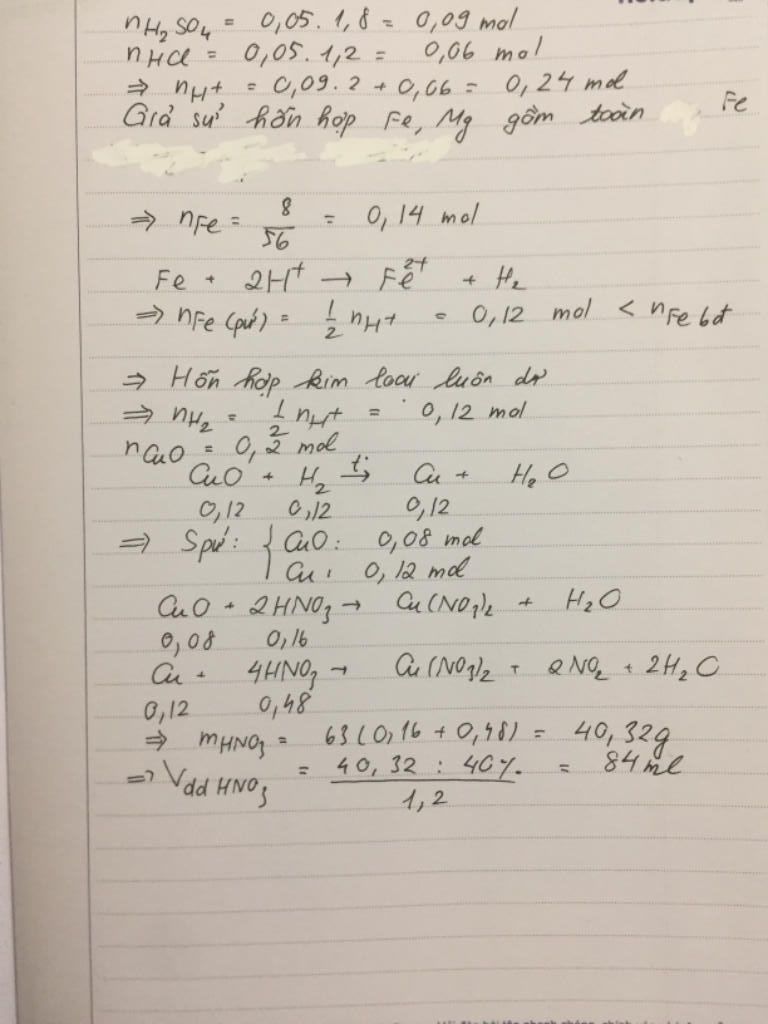 nH₂SO₄ = 0,05. 1,8 = 0,09 mol
nHCl = 0,05. 1,2 = 0,06 mol
⇒ nH+ = 0,09. 2 + 0,06 = 0,24 mol
Giả sử hỗn hợp Fe, Mg gồm toàn Fe
⇒ nFe = 8/56 = 0,14 mol
Fe + 2H⁺ → Fe²⁺ + H₂
⇒ nFe (pứ) = 1/2 nH+ = 0,12 mol < nFe bđ
⇒ Hỗn hợp kim loại luôn dư
⇒ nH₂ = 1/2 nH+ = 0,12 mol
nCuO = 0,2 mol
CuO + H₂ t°→ Cu + H₂O
0,12 0,12 0,12
⇒ Spứ: { CuO: 0,08 mol
Cu: 0,12 mol
CuO + 2HNO₃ → Cu(NO₃)₂ + H₂O
0,08 0,16
Cu + 4HNO₃ → Cu(NO₃)₂ + 2NO₂ + 2H₂O
0,12 0,48
⇒ mHNO₃ = 63(0,16 + 0,48) = 40,32g
⇒ Vdd HNO₃ = 40,32 : 40% / 1,2 = 84 ml